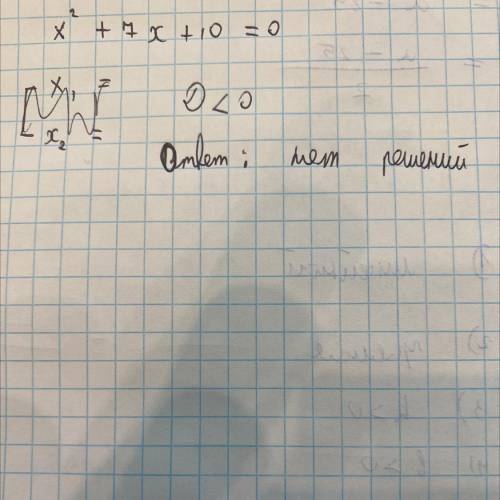 x² + 7x + 10 = 0
x₁ =
x₂ =
D < 0
Ответ: нет решений